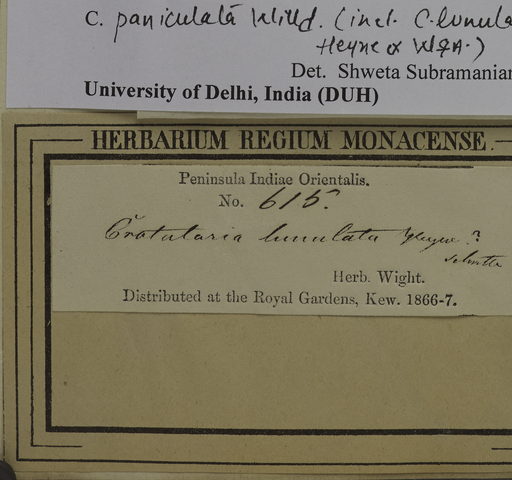 C. paniculata Willd. (incl. C. lunula
Heyne ex W&A.)
Det. Shweta Subramanian
University of Delhi, India (DUH)
HERBARIUM REGIUM MONACENSE.
Peninsula Indiae Orientalis.
No. 615.
Crotalaria lunulata Heyne ?
Herb. Wight.
Distributed at the Royal Gardens, Kew. 1866-7.